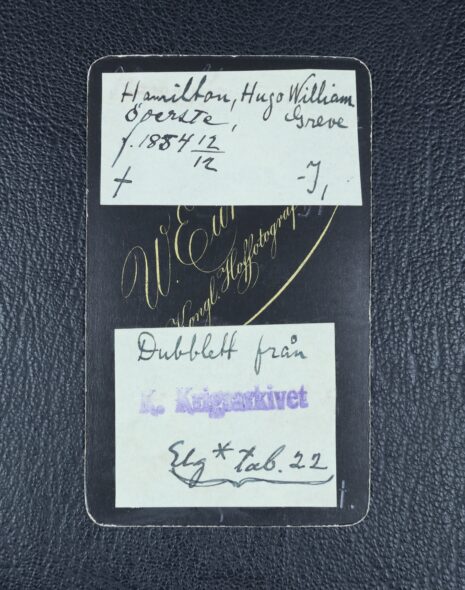 Hamilton, Hugo William
Överste, Greve
f. 1854 12/12
† -J,
W. Eur
Kongl. Hoffotograf
Dubblett från
K. Krigsarkivet
Elg* tab. 22